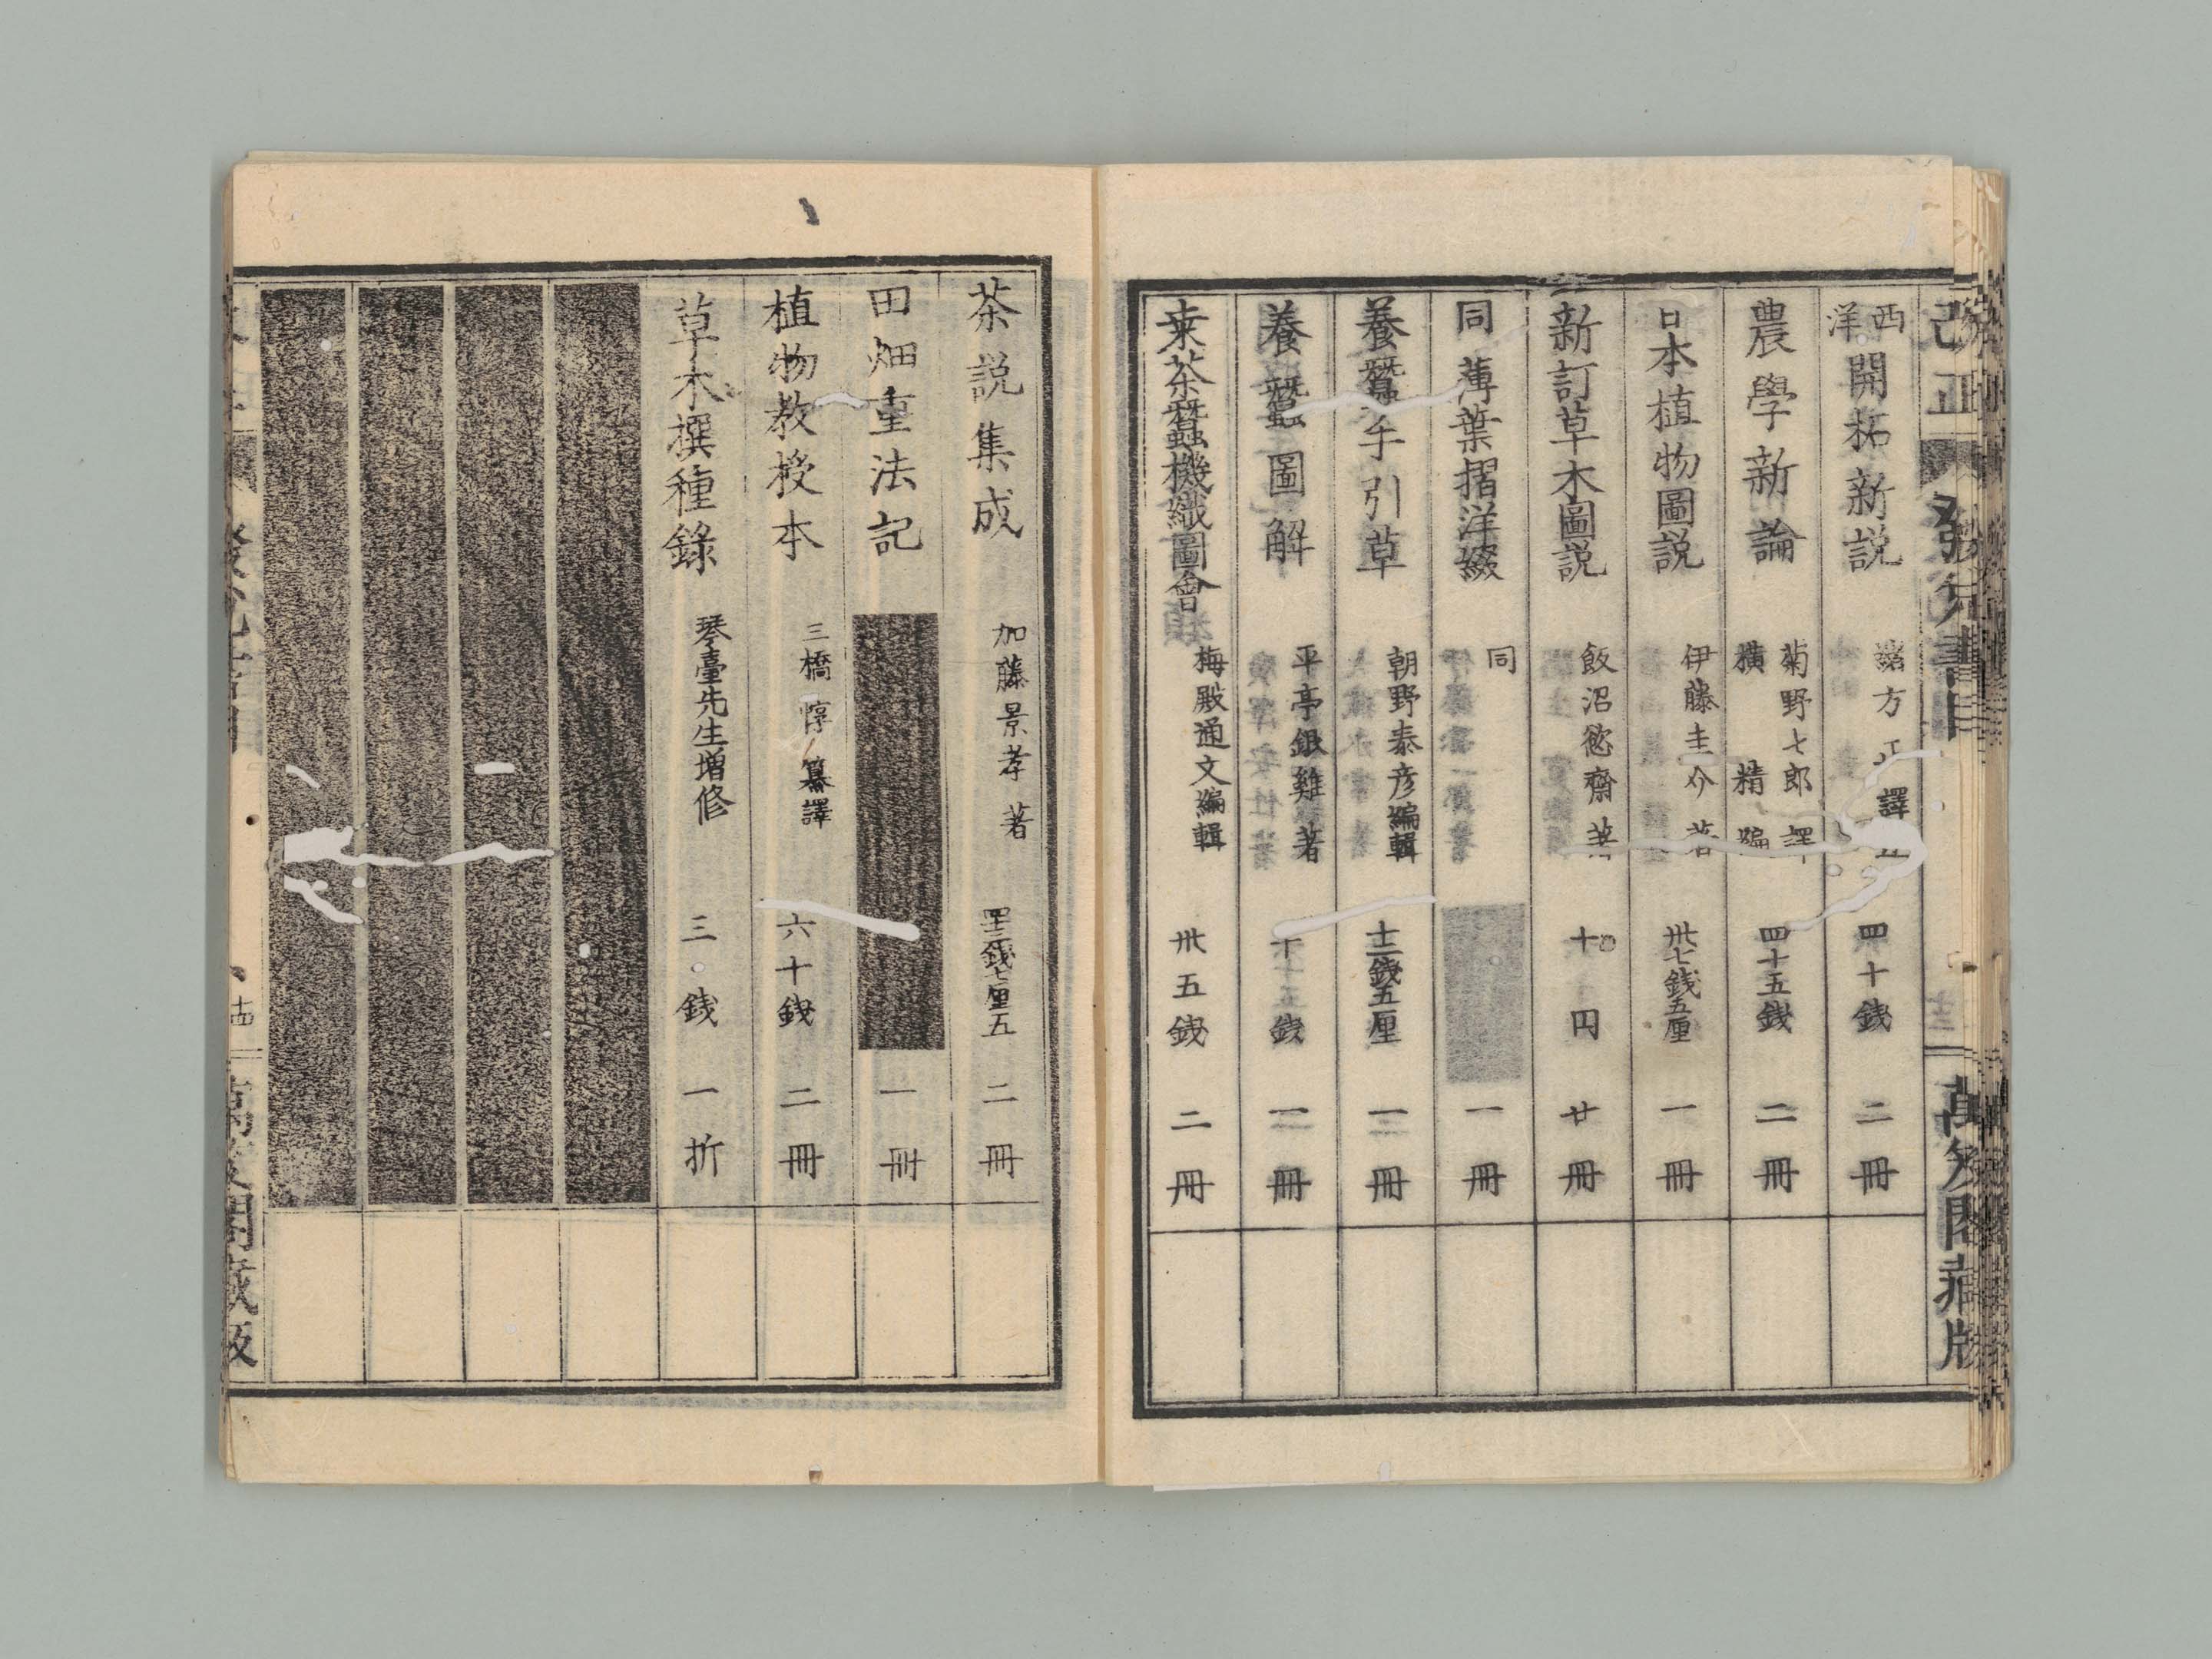 改正 發兌書目 萬笈閣藏版
西洋開拓新説 緒方正譯述 四十銭 二冊
農學新論 菊野七郎譯 横精編 四十五銭 二冊
日本植物圖説 伊藤圭介著 卅七銭五厘 一冊
新訂草木圖説 飯沼慾齋著 十円 廿冊
同薄葉摺洋綴 同 一冊
養蠶手引草 朝野泰彦編輯 十二銭五厘 一冊
養蠶圖解 平亭銀雞著 銭 冊
桒茶蠶機織圖會 梅殿通文編輯 卅五銭 二冊
茶説集成 加藤景孝著 二冊
田畑重法記 一冊
植物教授本 三橋惇纂譯 六十銭 二冊
草木撰種錄 琴臺先生増修 三銭 一折
十四